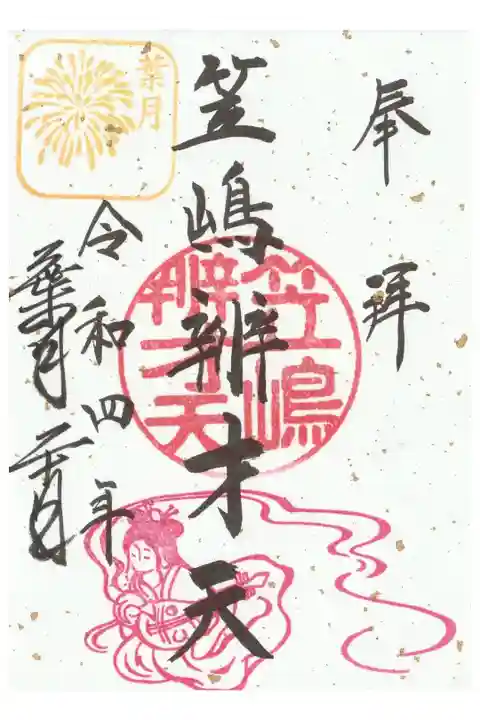 奉拝
笠嶋辨才天
笠嶋
辨才天
令和四年
葉月
葉月